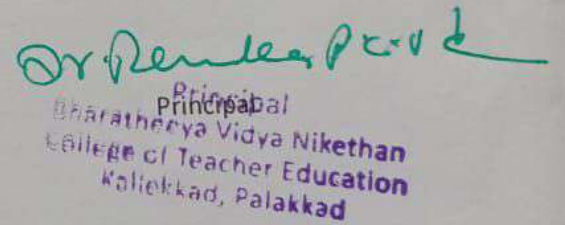 Dr.
Principal
Principal
Bharatheeya Vidya Nikethan
College of Teacher Education
Kallekkad, Palakkad